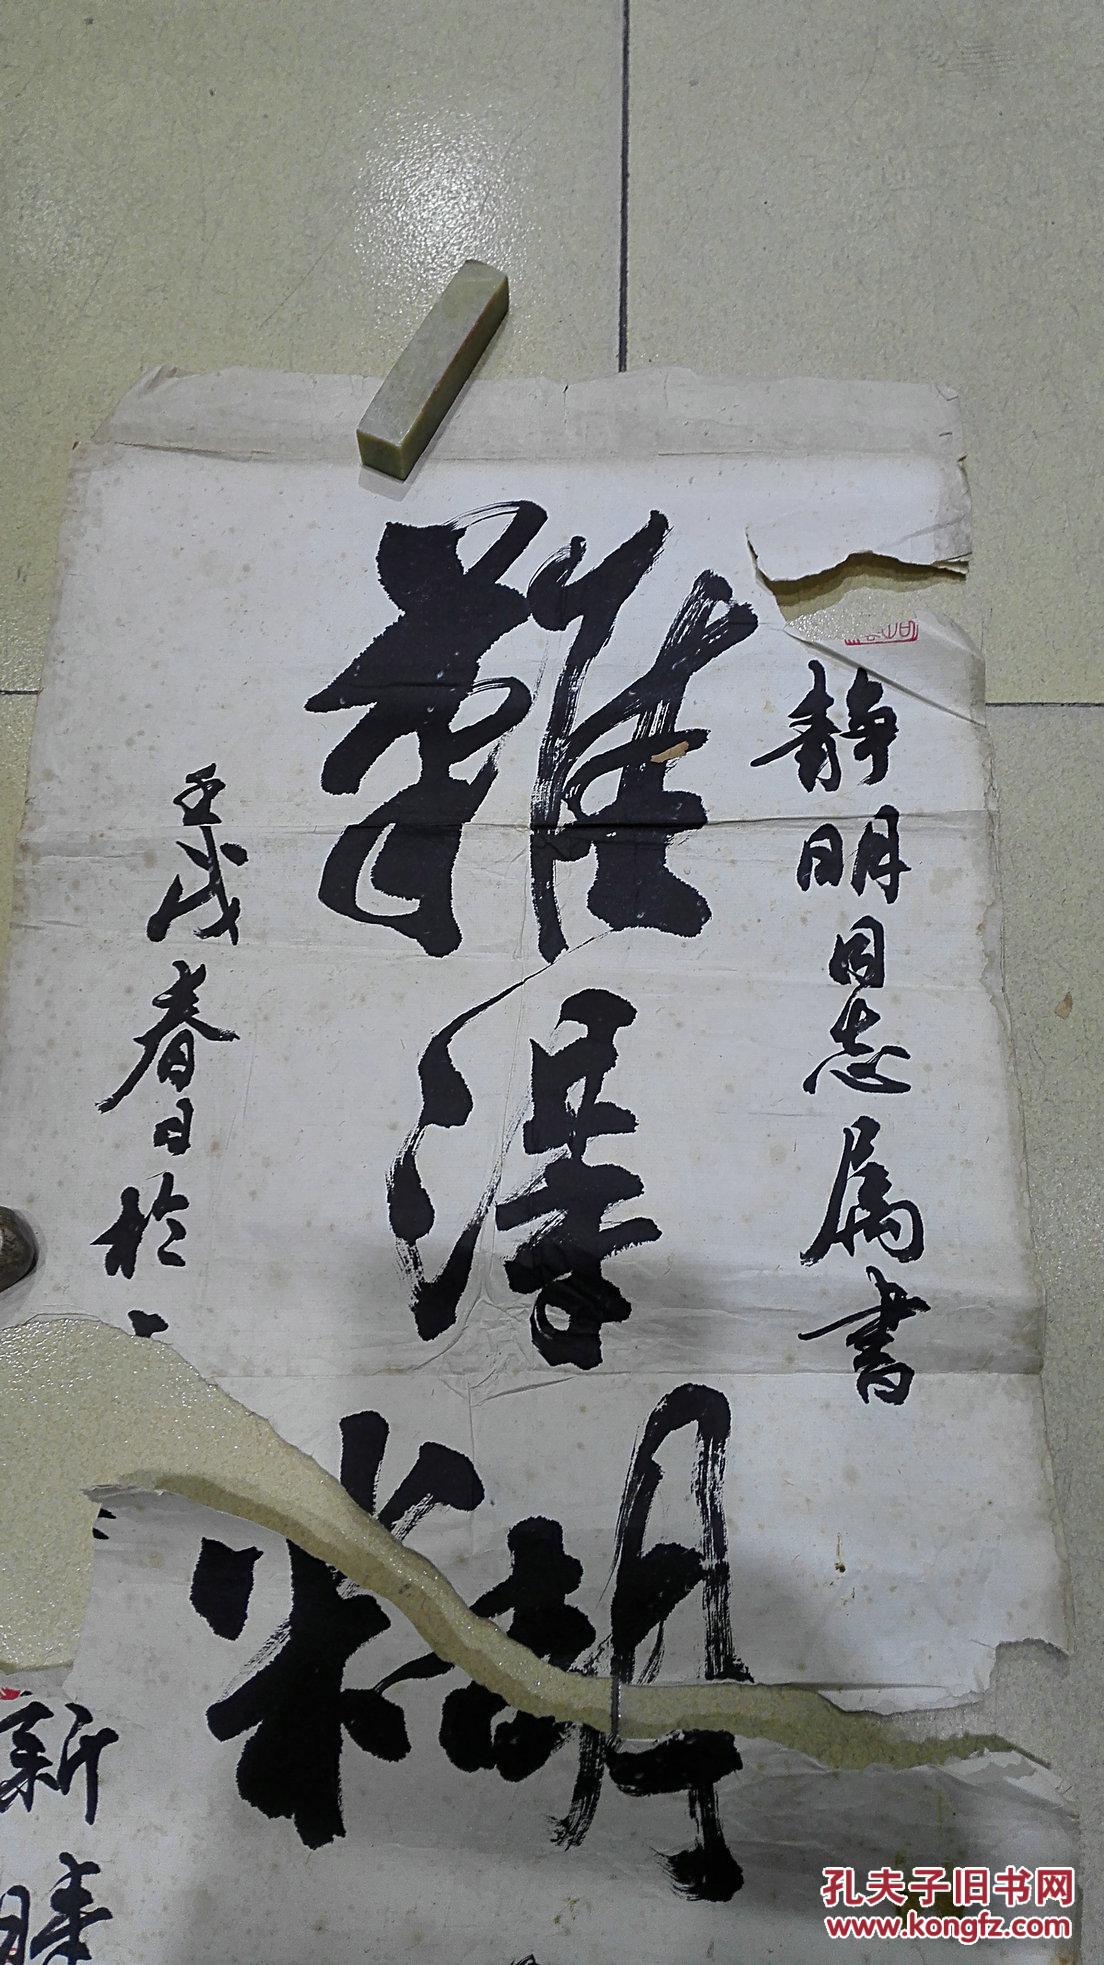 静明同志属书
難得糊
壬戌春日於
新
勝
孔夫子旧书网
www.kongfz.com